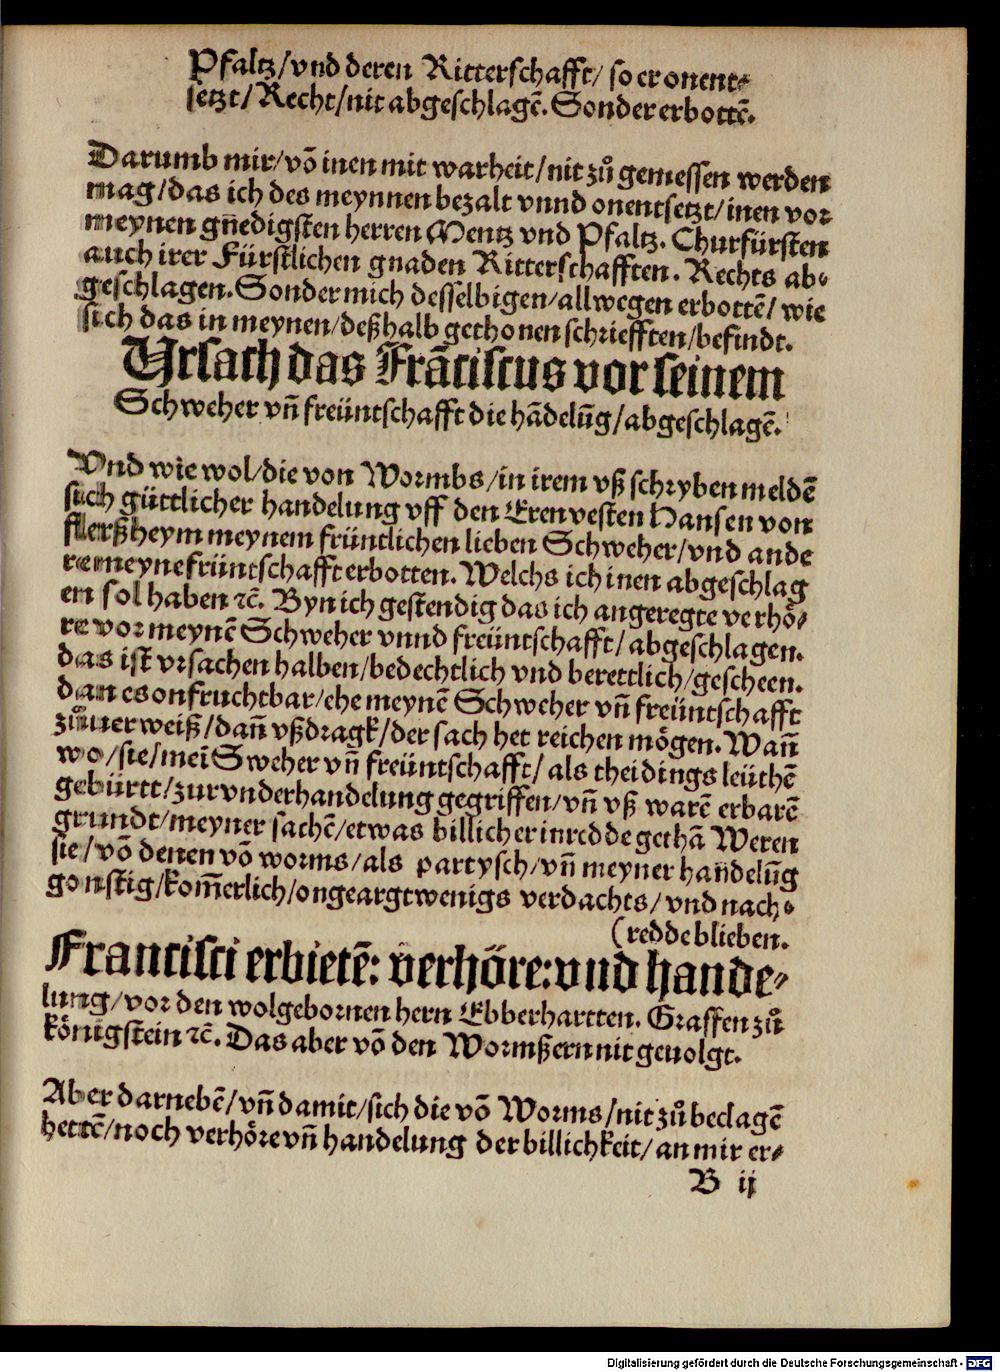 Pfaltz/vnd deren Ritterschafft/ so er onent⸗
setzt/ Recht/nit abgeschlagē. Sonder erbottē.
Darumb mir/vō inen mit warheit/nit zů gemessen werden
mag/das ich des meynnen bezalt vnnd onentsetzt/inen vor
meynen gnedigsten herren Mentz vnd Pfaltz. Churfürsten
auch irer Fürstlichen gnaden Ritterschafften. Rechts ab⸗
geschlagen. Sonder mich desselbigen/allwegen erbottē/ wie
sich das in meynen/deßhalb gethonen schriefften/befindt.
Vrsach das Frāciscus vor seinem
Schweher vñ freüntschafft die hādelūg/abgeschlagē.
Vnd wie wol/die von Wormbs/in irem vß schryben meldē
sich güttlicher handelung vff den Erenvesten Hansen von
flerßheym meynem früntlichen lieben Schweher/vnd ande
re meyne früntschafft erbotten. Welchs ich inen abgeschlag
en sol haben ꝛc̄. Byn ich gestendig das ich angeregte verhö⸗
re vor meynē Schweher vnnd freüntschafft/ abgeschlagen.
das ist vrsachen halben/bedechtlich vnd berettlich/gescheen.
dan es onfruchtbar/ehe meynē Schweher vñ freüntschafft
zůuerweiß/dañ vßdragk/der sach het reichen mögen. Wañ
wo/sie/mei̅ Sweher vñ freüntschafft/ als theidings leüthē
gebürtt/zur vnderhandelung gegriffen/vñ vß warē erbarē
grundt/meyner sachē/etwas billicher inredde gethā Weren
sie/vō denen vō worms/als partysch/vñ meyner handelūg
gonstig/kom̄erlich/ongeargtwenigs verdachts/ vnd nach⸗
(redde blieben.
Francisci erbietē: verhöre: vnd hande⸗
lung/vor den wolgebornen hern Ebberhartten. Graffen zů
königstein ꝛc̄. Das aber vō den Wormßern nit geuolgt.
Aber darnebē/vñ damit/sich die vō Worms/nit zů beclagē
hettē/noch verhöre vñ handelung der billichkeit/ an mir er⸗
B ij
Digitalisierung gefördert durch die Deutsche Forschungsgemeinschaft - DFG